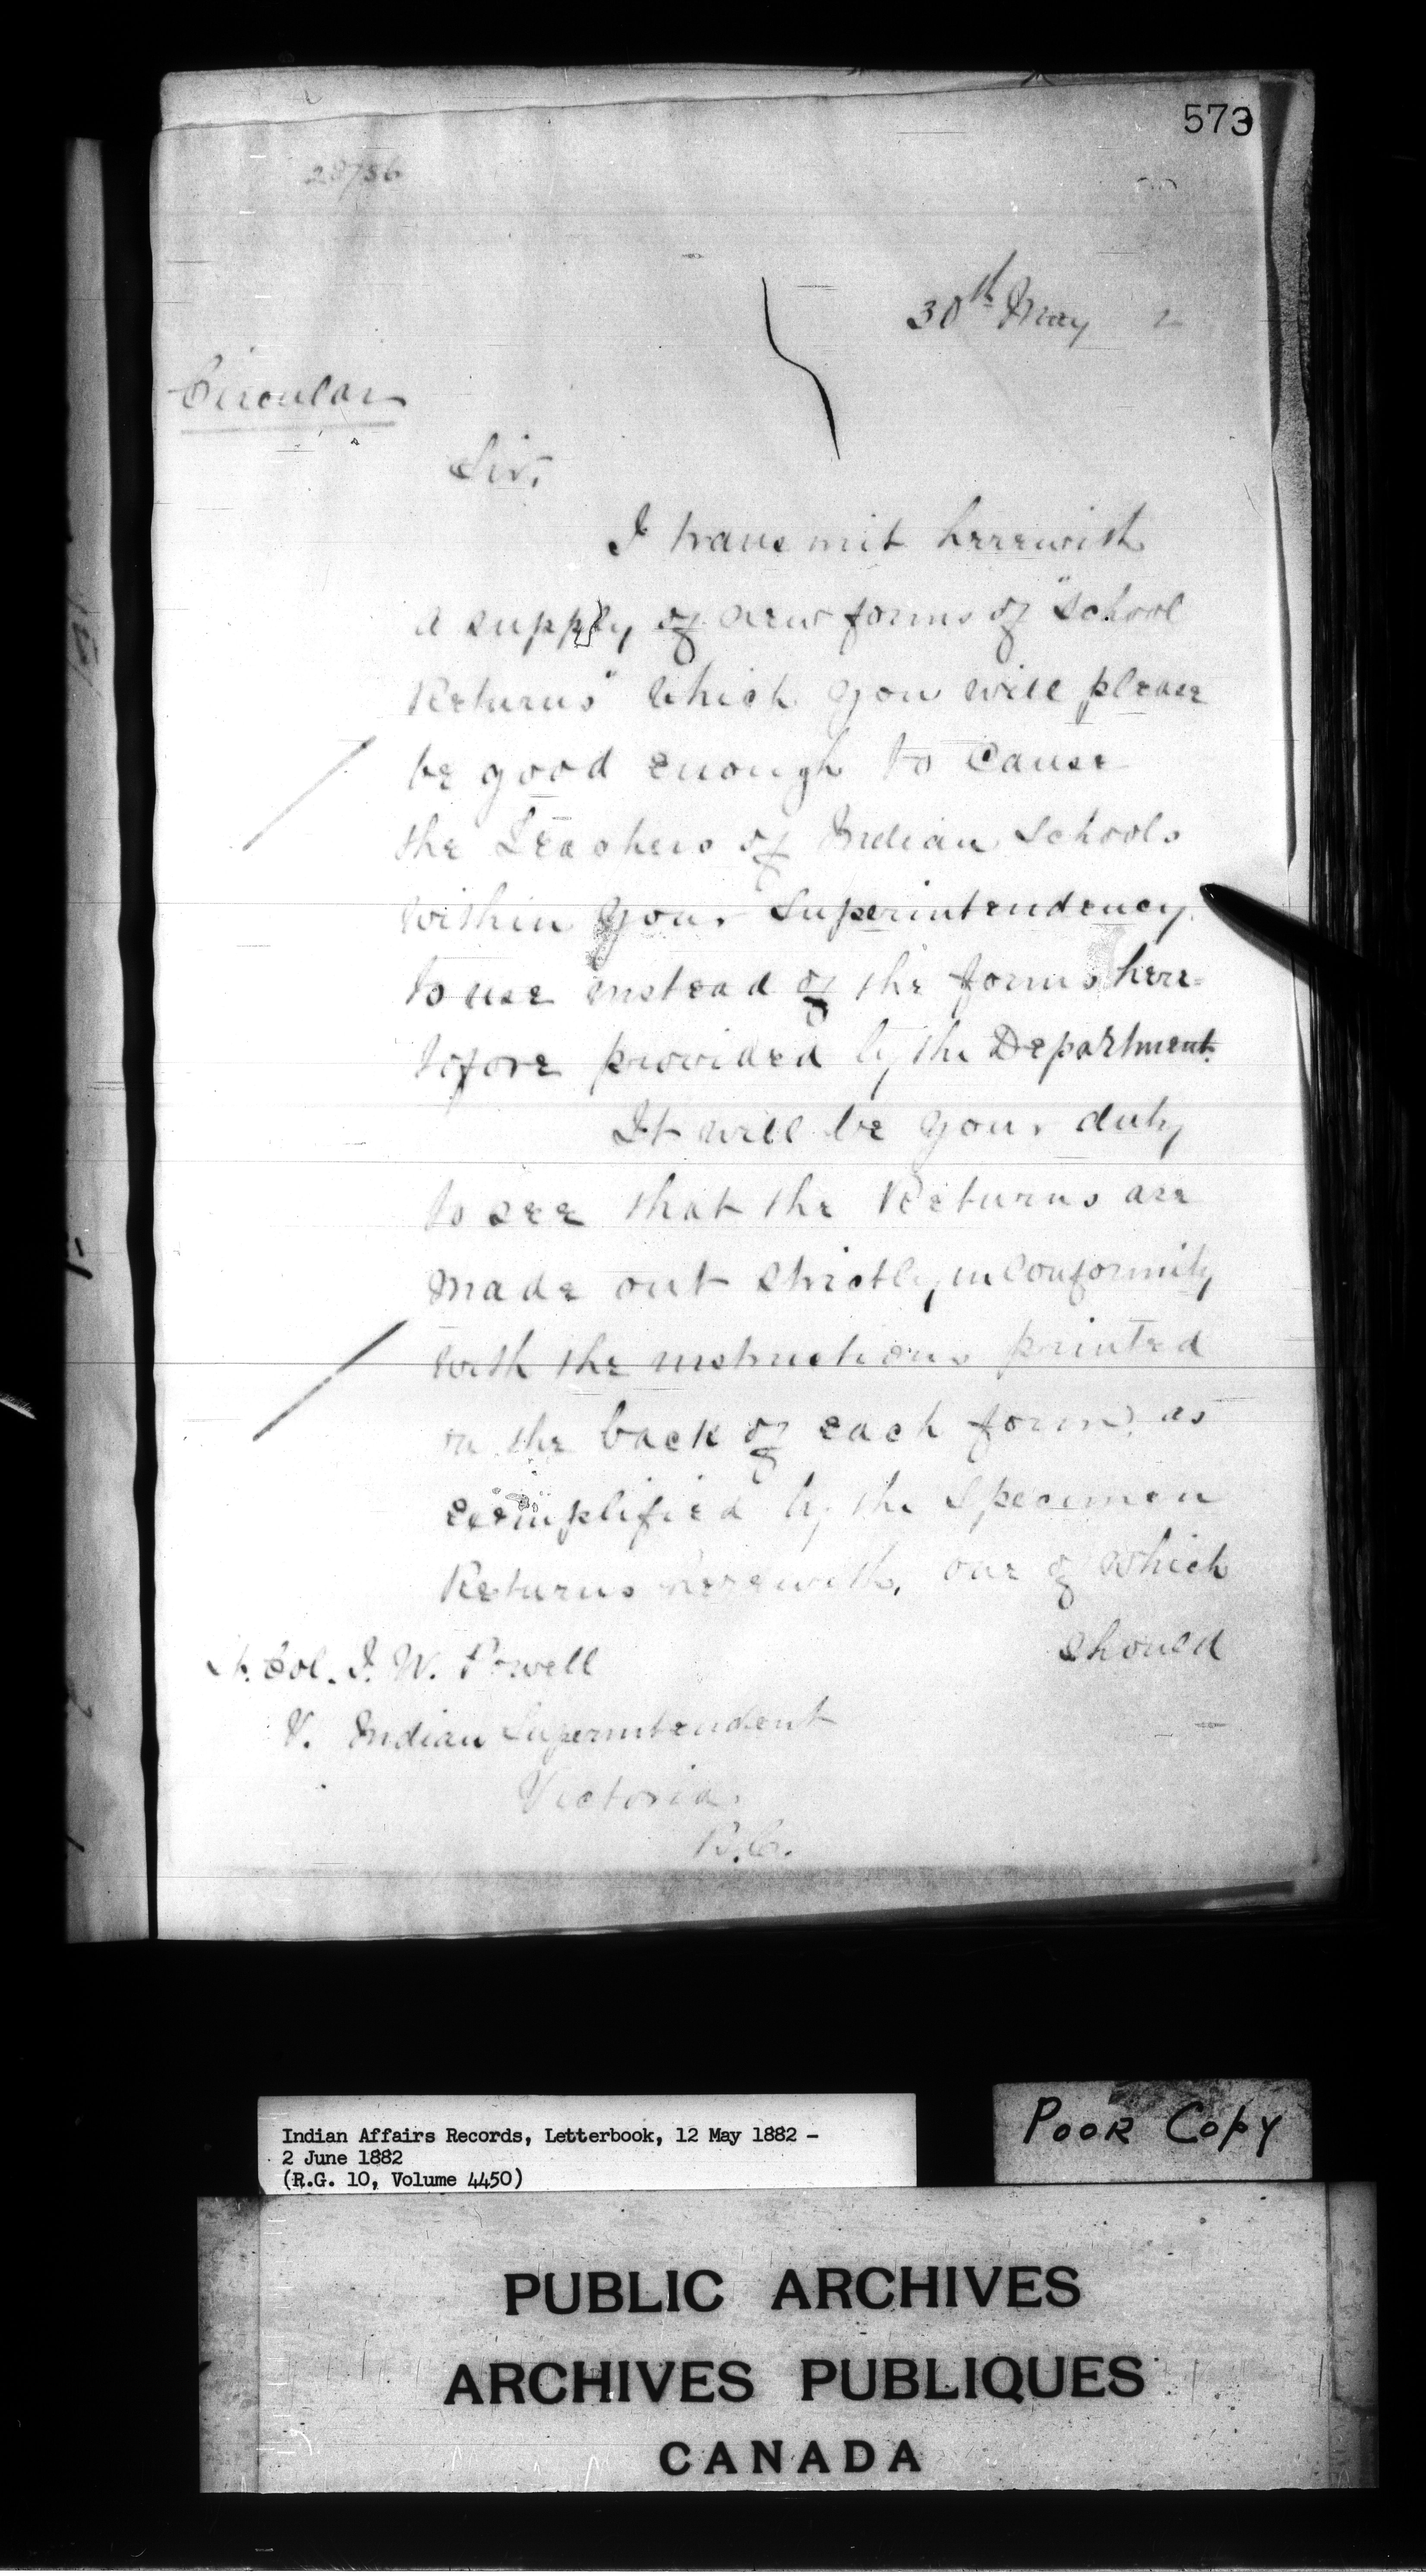 573
28756
30th May 2
Circular
Sir,
I transmit herewith
a supply of new forms of "School
Returns" which you will please
be good enough to cause
the Teachers of Indian Schools
within your Superintendency
to use instead of the forms here=
tofore provided by the Department.
It will be your duty
to see that the Returns are
made out strictly in conformity
with the instructions printed
on the back of each form, as
exemplified by the Specimen
Returns herewith, one of which
should
Lt. Col. I. W. Powell
V. Indian Superintendent
Victoria,
B.C.
Indian Affairs Records, Letterbook, 12 May 1882 -
2 June 1882
(R.G. 10, Volume 4450)
POOR COPY
PUBLIC ARCHIVES
ARCHIVES PUBLIQUES
CANADA